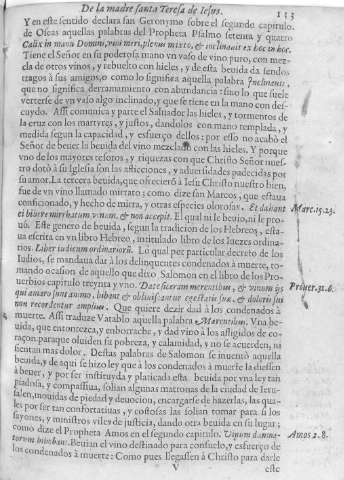 De la madre santa Teresa de Iesus.
153
Y en este sentido declara san Geronymo sobre el segundo capitulo
de Oseas aquellas palabras del Propheta Psalmo setenta y quatro
Calix in manu Domini, vini meri, plenus mixto, & inclinauit ex hoc in hoc.
Tiene el Señor en su poderosa mano vn vaso de vino puro, con mez-
cla de otros vinos, y rebuelto con hieles, y de esta beuida da sendos
tragos à sus amigos, o como lo significa aquella palabra Inclinauit,
que no significa derramamiento con abundancia: sino lo que suele
verterse de vn vaso algo inclinado, y que se tiene en la mano con des-
cuydo. Assi comunica y parte el Saluador las hieles, y tormentos de
la cruz con los martyres, y justos, dandolos con mano templada, y
medida segun la capacidad, y esfuerço dellos: por esso no acabò el
Señor de beuer la beuida del vino mezclada con las hieles. Y porque
vno de los mayores tesoros, y riquezas con que Christo Señor nues-
tro dotò à su Iglesia son las aflicciones, y aduersidades padecidas por
su amor. La tercera beuida, que ofrecierõ à Iesu Christo nuestro bien,
fue de vn vino llamado mirrato; como dize san Marcos, que estaua
conficionado, y hecho de mirra, y otras especies olorosas. Et dabant
Marc. 15.23.
ei bibere mirrhatum vinum, & non accepit. El qual ni le beuio, ni le pro-
uò. Este genero de beuida, segun la tradicion de los Hebreos, esta-
ua escrita en vn libro Hebreo, intitulado libro de los Iuezes ordina-
rios. Liber iudicum ordinariorũ. Lo qual por particular decreto de los
Iudios, se mandaua dar à los delinquentes condenados à muerte, to-
mando ocasion de aquello que dixo Salomon en el libro de los Pro-
uerbios capitulo treynta y vno. Date siceram merentibus, & vinum ijs
Prouer. 31.6.
qui amaro sunt animo, bibant & obliuiscantur egestatis suæ, & doloris sui
non recordentur amplius. Que quiere dezir dad à los condenados à
muerte. Assi traduze Vatablo aquella palabra Mœrentibus. Vna be-
uida, que entontezca, y enborrache, y dad vino à los afligidos de co-
raçon, paraque oluiden su pobreza, y calamidad, y no se acuerden, ni
sientan mas dolor. Destas palabras de Salomon se inuentò aquella
beuida, y de aqui se hizo ley que à los condenados à muerte la diessen
à beuer, y por ser instituyda y platicada esta beuida por vna ley tan
piadosa, y compassiua, solian algunas matronas de la ciudad de Ieru-
salen, mouidas de piedad y deuocion, encargarse de hazerlas, las qua-
les por ser tan confortatiuas, y costosas las solian tomar para si los
sayones, y ministros viles de justicia, dando otra beuida en su lugar;
como dize el Propheta Amos en el segundo capitulo. Vinum damna-
Amos 2.8.
torum bibebant. Beuian el vino destinado para consuelo, y esfuerço de
los condenados à muerte: Como pues llegassen à Christo para darle
V
este